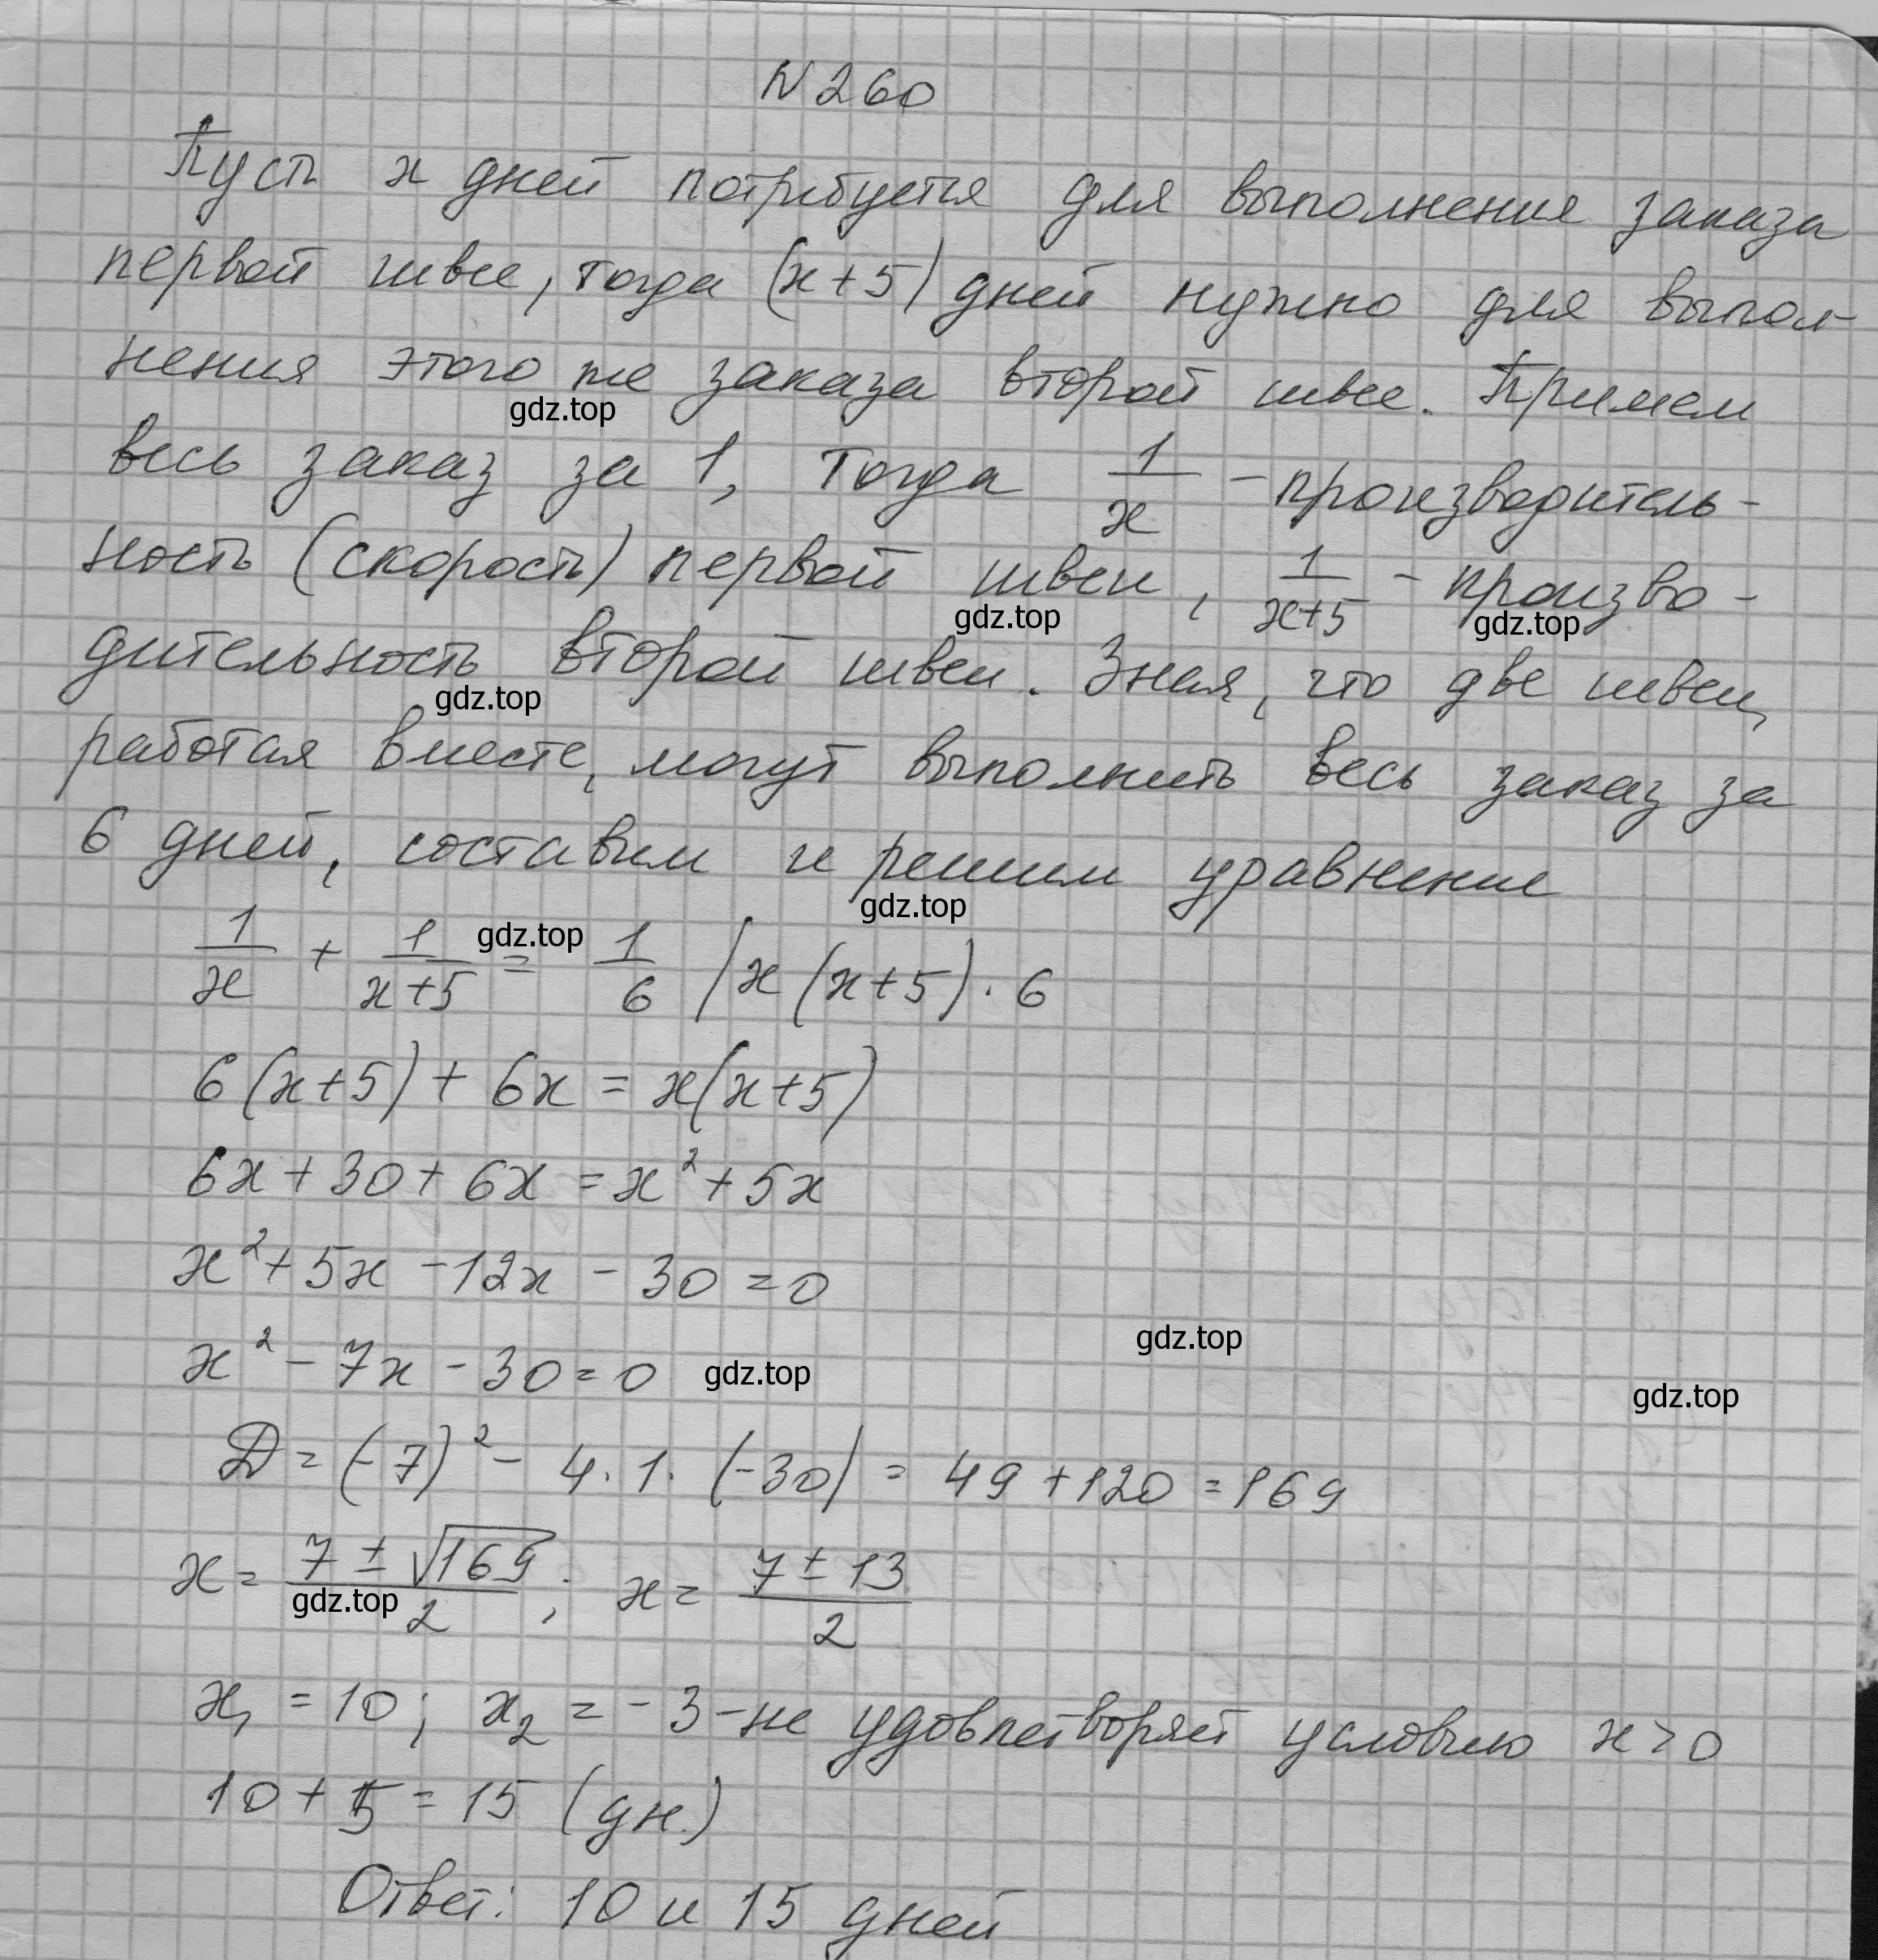 N 260
Пусть x дней потребуется для выполнения заказа
первой швее, тогда (x+5) дней нужно для выпол-
нения этого же заказа второй швее. Примем
gdz.top
весь заказ за 1, тогда 1/x - производитель-
ность (скорость) первой швеи, 1/(x+5) - произво-
gdz.top gdz.top
дительность второй швеи. Зная, что две швеи,
gdz.top
работая вместе, могут выполнить весь заказ за
6 дней, составим и решим уравнение
gdz.top
1/x + 1/(x+5) = 1/6 | x(x+5) · 6
gdz.top
6(x+5) + 6x = x(x+5)
6x + 30 + 6x = x² + 5x
x² + 5x - 12x - 30 = 0
x² - 7x - 30 = 0
gdz.top
gdz.top
gdz.top
D = (-7)² - 4 · 1 · (-30) = 49 + 120 = 169
x = (7 ± √169)/2 ; x = (7 ± 13)/2
gdz.top
x₁ = 10; x₂ = -3 - не удовлетворяет условию x > 0
10 + 5 = 15 (дн.)
Ответ: 10 и 15 дней